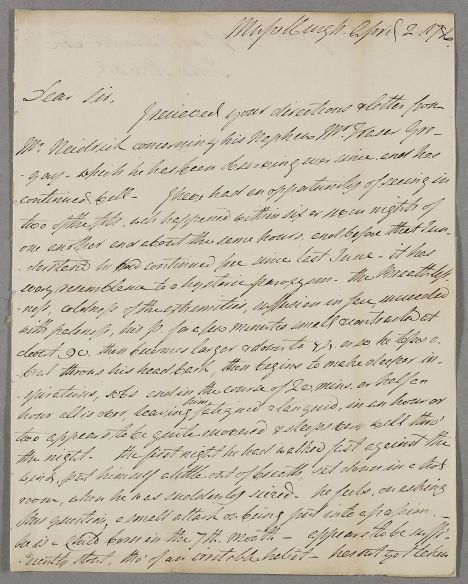 Musselburgh. April 2. 1786.
Dear Sir,
I received your directions & letter from
Mr. concerning his Nephew Mr. Fraser
- which he has been ever since, and has
continued well - I have had an opportunity of seeing in
two of the fits, wch happened within six or seven nights of
one another and about the same hours, and before that I un-
derstand he had continued free since last June. it has
every resemblance to a hysteric paroxysm - the Breathless-
ness, coldness of the extremities, suffusion in face, succeeded
with paleness, his p. for a few minutes small & contracted at
about 90 then becomes larger & down to or so he
but throws his head back, then begins to make deeper in-
spirations, sobs and in the course of 20 mins. or half an
hour all is over, leaving him fatigued & languid, in an hour or
two appears to be quite recovered & sleeps very well thro'
the night. the first night he had walked fast against the
wind, put himself a little out of breath, sat down in a hot
room, when he was suddenly seized. he feels, on asking
him question, a small attack on being put into a passion.
he is a child born in the 7th. month - appears to be suffi-
ciently stout, tho' of an irritable habit - has not got